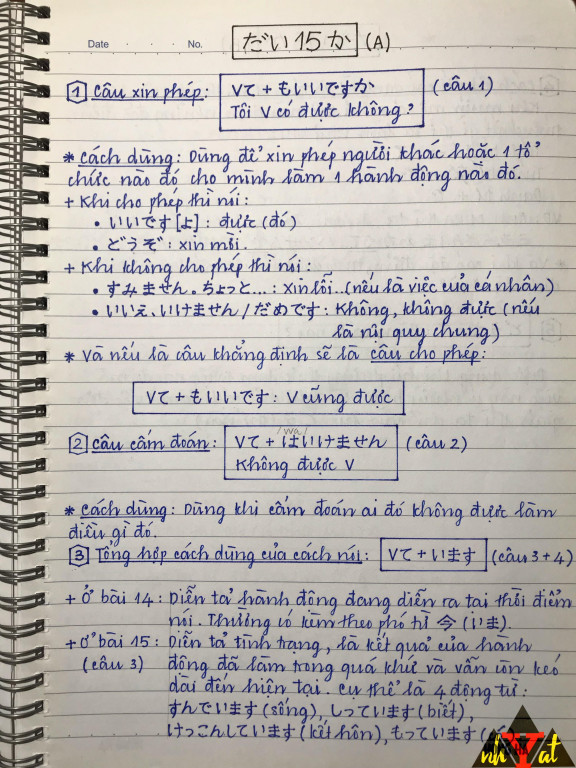 Date . . . No.
だい15か (A)
1 Câu xin phép: Vて + もいいですか (câu 1)
Tôi V có được không?
* Cách dùng: Dùng để xin phép người khác hoặc 1 tổ
chức nào đó cho mình làm 1 hành động nào đó.
+ Khi cho phép thì nói:
• いいです [よ]: được (đó)
• どうぞ: xin mời.
+ Khi không cho phép thì nói:
• すみません。ちょっと...: Xin lỗi..(nếu là việc của cá nhân)
• いいえ、いけません/だめです: Không, không được (nếu
là nội quy chung)
* Và nếu là câu khẳng định sẽ là câu cho phép:
Vて + もいいです: V cũng được
/wa/
2 Câu cấm đoán: Vて + はいけません (câu 2)
Không được V
* Cách dùng: Dùng khi cấm đoán ai đó không được làm
điều gì đó.
3 Tổng hợp cách dùng của cách nói: Vて + います (câu 3+4)
+ Ở bài 14: Diễn tả hành động đang diễn ra tại thời điểm
nói. Thường có kèm theo phó từ 今 (いま).
+ Ở bài 15: Diễn tả tình trạng, là kết quả của hành
(câu 3) động đã làm trong quá khứ và vẫn còn kéo
dài đến hiện tại. Cụ thể là 4 động từ:
すんでいます (sống), しっています (biết),
けっこんしています (kết hôn), もっています
nh at